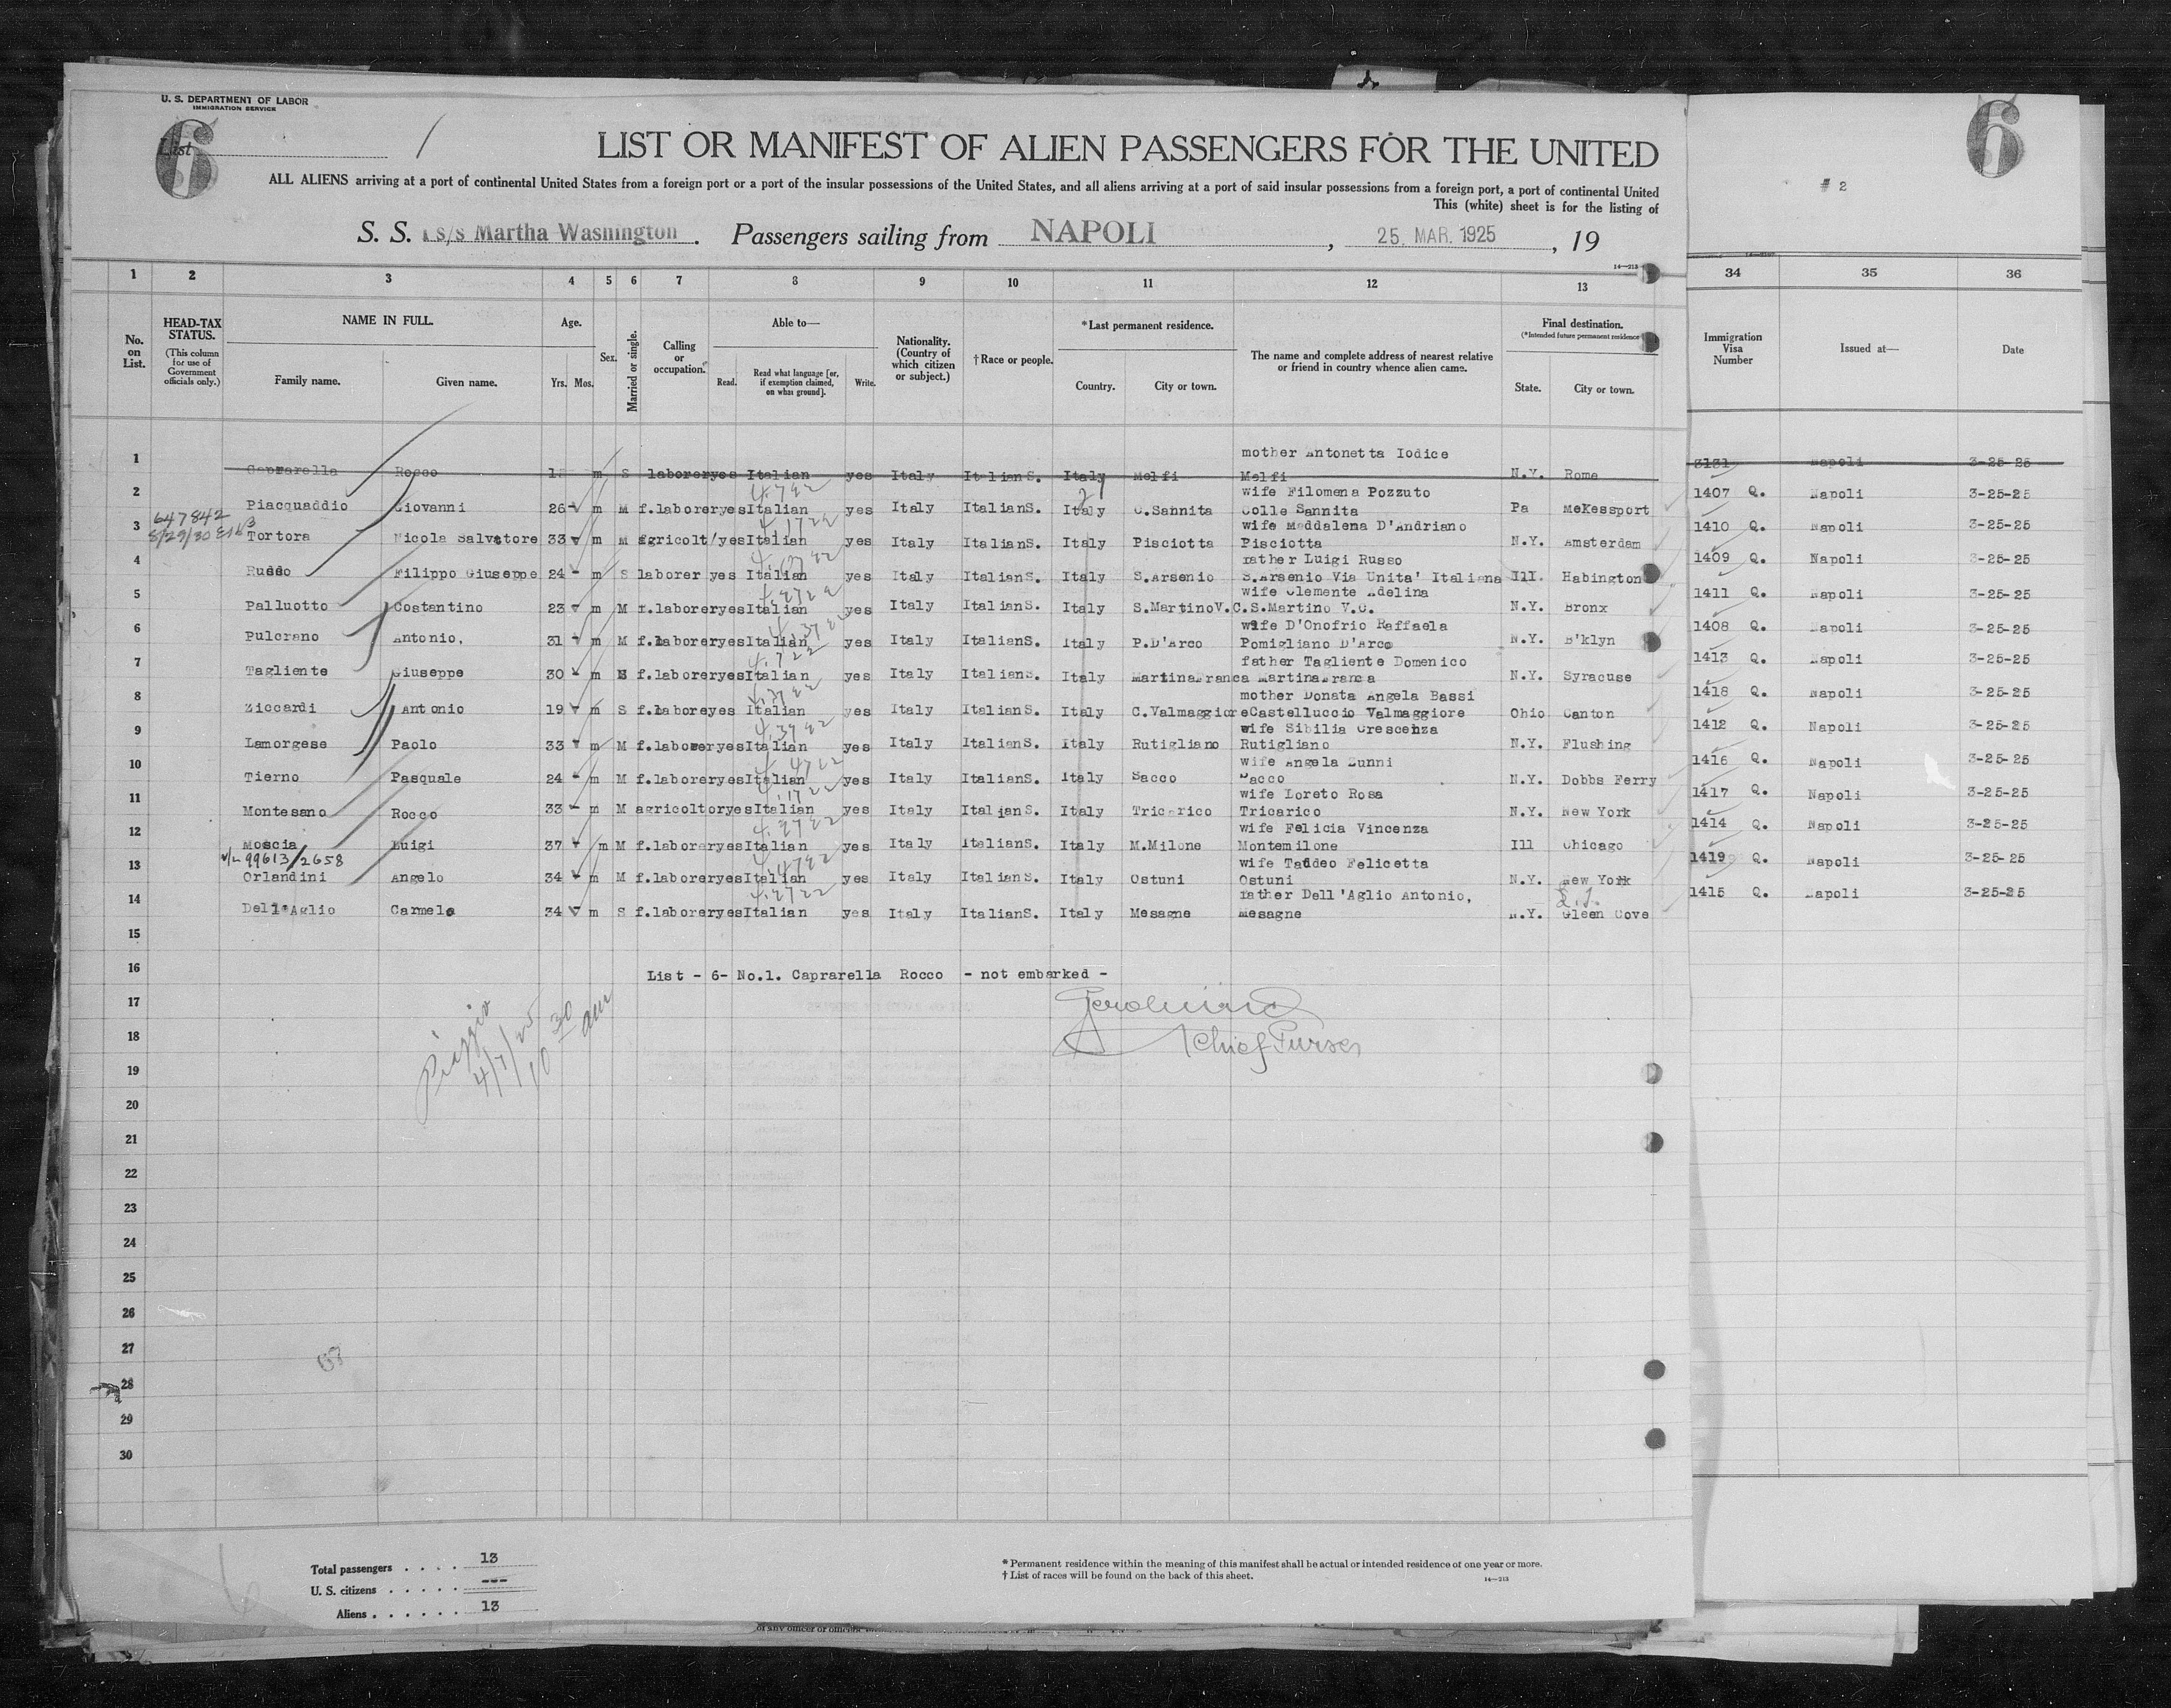 U. S. DEPARTMENT OF LABOR
IMMIGRATION SERVICE
6
List
6
# 2
LIST OR MANIFEST OF ALIEN PASSENGERS FOR THE UNITED
ALL ALIENS arriving at a port of continental United States from a foreign port or a port of the insular possessions of the United States, and all aliens arriving at a port of said insular possessions from a foreign port, a port of continental United
This (white) sheet is for the listing of
S. S. s/s Martha Washington. Passengers sailing from NAPOLI, 25. MAR. 1925, 19
14—213
1 2 3 4 5 6 7 8 9 10 11 12 13 34 35 36
No. on List.
HEAD-TAX STATUS.
(This column for use of Government officials only.)
NAME IN FULL.
Family name. Given name.
Age.
Yrs. Mos.
Sex.
Married or single.
Calling or occupation.
Able to—
Read. Read what language [or, if exemption claimed, on what ground]. Write.
Nationality. (Country of which citizen or subject.)
†Race or people.
*Last permanent residence.
Country. City or town.
The name and complete address of nearest relative or friend in country whence alien came.
Final destination.
(*Intended future permanent residence
State. City or town.
Immigration Visa Number
Issued at—
Date
mother Antonetta Iodice
1 Caprarella Rocco m S laborer yes Italian yes Italy Italian S. Italy Melfi Melfi N.Y. Rome 3131 Napoli 3-25-25
wife Filomena Pozzuto
2 Piacquaddio Giovanni 26 m M f.laborer yes Italian yes Italy Italian S. Italy C.Sannita Colle Sannita Pa McKessport 1407 Q. Napoli 3-25-25
647842
8/29/30
wife Maddalena D'Andriano
3 Tortora Nicola Salvatore 33 m M agricolt/ yes Italian yes Italy Italian S. Italy Pisciotta Pisciotta N.Y. Amsterdam 1410 Q. Napoli 3-25-25
father Luigi Russo
4 Russo Filippo Giuseppe 24 m S laborer yes Italian yes Italy Italian S. Italy S.Arsenio S.Arsenio Via Unita' Italiana Ill. Habington 1409 Q. Napoli 3-25-25
wife Clemente Adelina
5 Palluotto Costantino 23 m M f.laborer yes Italian yes Italy Italian S. Italy S.MartinoV.C. S.Martino V.C. N.Y. Bronx 1411 Q. Napoli 3-25-25
wife D'Onofrio Raffaela
6 Pulcrano Antonio, 31 m M f.laborer yes Italian yes Italy Italian S. Italy P.D'Arco Pomigliano D'Arco N.Y. B'klyn 1408 Q. Napoli 3-25-25
father Tagliente Domenico
7 Tagliente Giuseppe 30 m S f.laborer yes Italian yes Italy Italian S. Italy Martinafranca Martinafranca N.Y. Syracuse 1413 Q. Napoli 3-25-25
mother Donata Angela Bassi
8 Ziccardi Antonio 19 m S f.labore yes Italian yes Italy Italian S. Italy C.Valmaggiore Castelluccio Valmaggiore Ohio Canton 1418 Q. Napoli 3-25-25
wife Sibilia Crescenza
9 Lamorgese Paolo 33 m M f.laborer yes Italian yes Italy Italian S. Italy Rutigliano Rutigliano N.Y. Flushing 1412 Q. Napoli 3-25-25
wife Angela Zunni
10 Tierno Pasquale 24 m M f.laborer yes Italian yes Italy Italian S. Italy Sacco Sacco N.Y. Dobbs Ferry 1416 Q. Napoli 3-25-25
wife Loreto Rosa
11 Montesano Rocco 33 m M agricoltor yes Italian yes Italy Italian S. Italy Tricarico Tricarico N.Y. New York 1417 Q. Napoli 3-25-25
wife Felicia Vincenza
12 Moscia Luigi 37 m M f.laborer yes Italian yes Italy Italian S. Italy M.Milone Montemilone Ill Chicago 1414 Q. Napoli 3-25-25
99613/2658
wife Taddeo Felicetta
13 Orlandini Angelo 34 m M f.laborer yes Italian yes Italy Italian S. Italy Ostuni Ostuni N.Y. New York 1419 Q. Napoli 3-25-25
father Dell'Aglio Antonio, L.I.
14 Dell'Aglio Carmelo 34 m S f.laborer yes Italian yes Italy Italian S. Italy Mesagne Mesagne N.Y. Gleen Cove 1415 Q. Napoli 3-25-25
15
16 List - 6- No.1. Caprarella Rocco - not embarked -
17
18 Chief Purser
4/7/25
10 30 am
19
20
21
22
23
24
25
26
27
28
29
30
Total passengers . . . . 13
U. S. citizens . . . . . ---
Aliens . . . . . . 13
* Permanent residence within the meaning of this manifest shall be actual or intended residence of one year or more.
† List of races will be found on the back of this sheet.
14—213
of any officer or officers